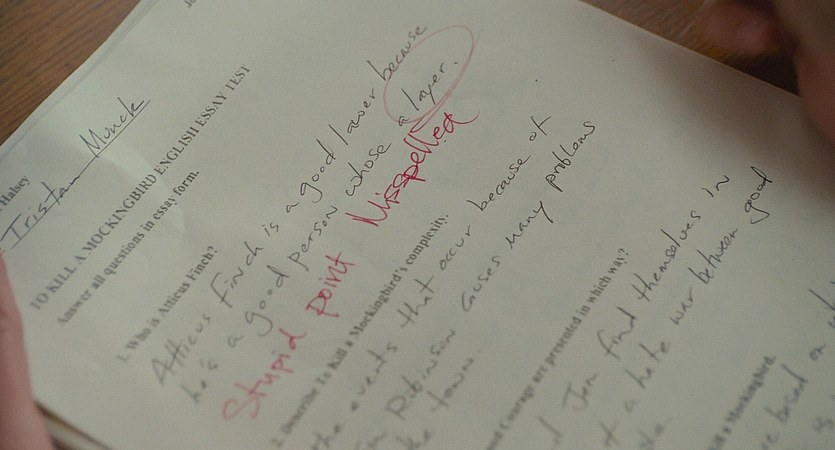 Halsey
Tristan Munck
TO KILL A MOCKINGBIRD ENGLISH ESSAY TEST
Answer all questions in essay form.
1. Who is Atticus Finch?
Atticus Finch is a good lawer because
he's a good person whose a layer.
Stupid point Misspelled
2. Describe To Kill a Mockingbird's complexity.
the events that occur because of
Robinson causes many problems
the town.
Courage are presented in which way?
Jem find themselves in
a hate war between good
a Mockingbird.
based on